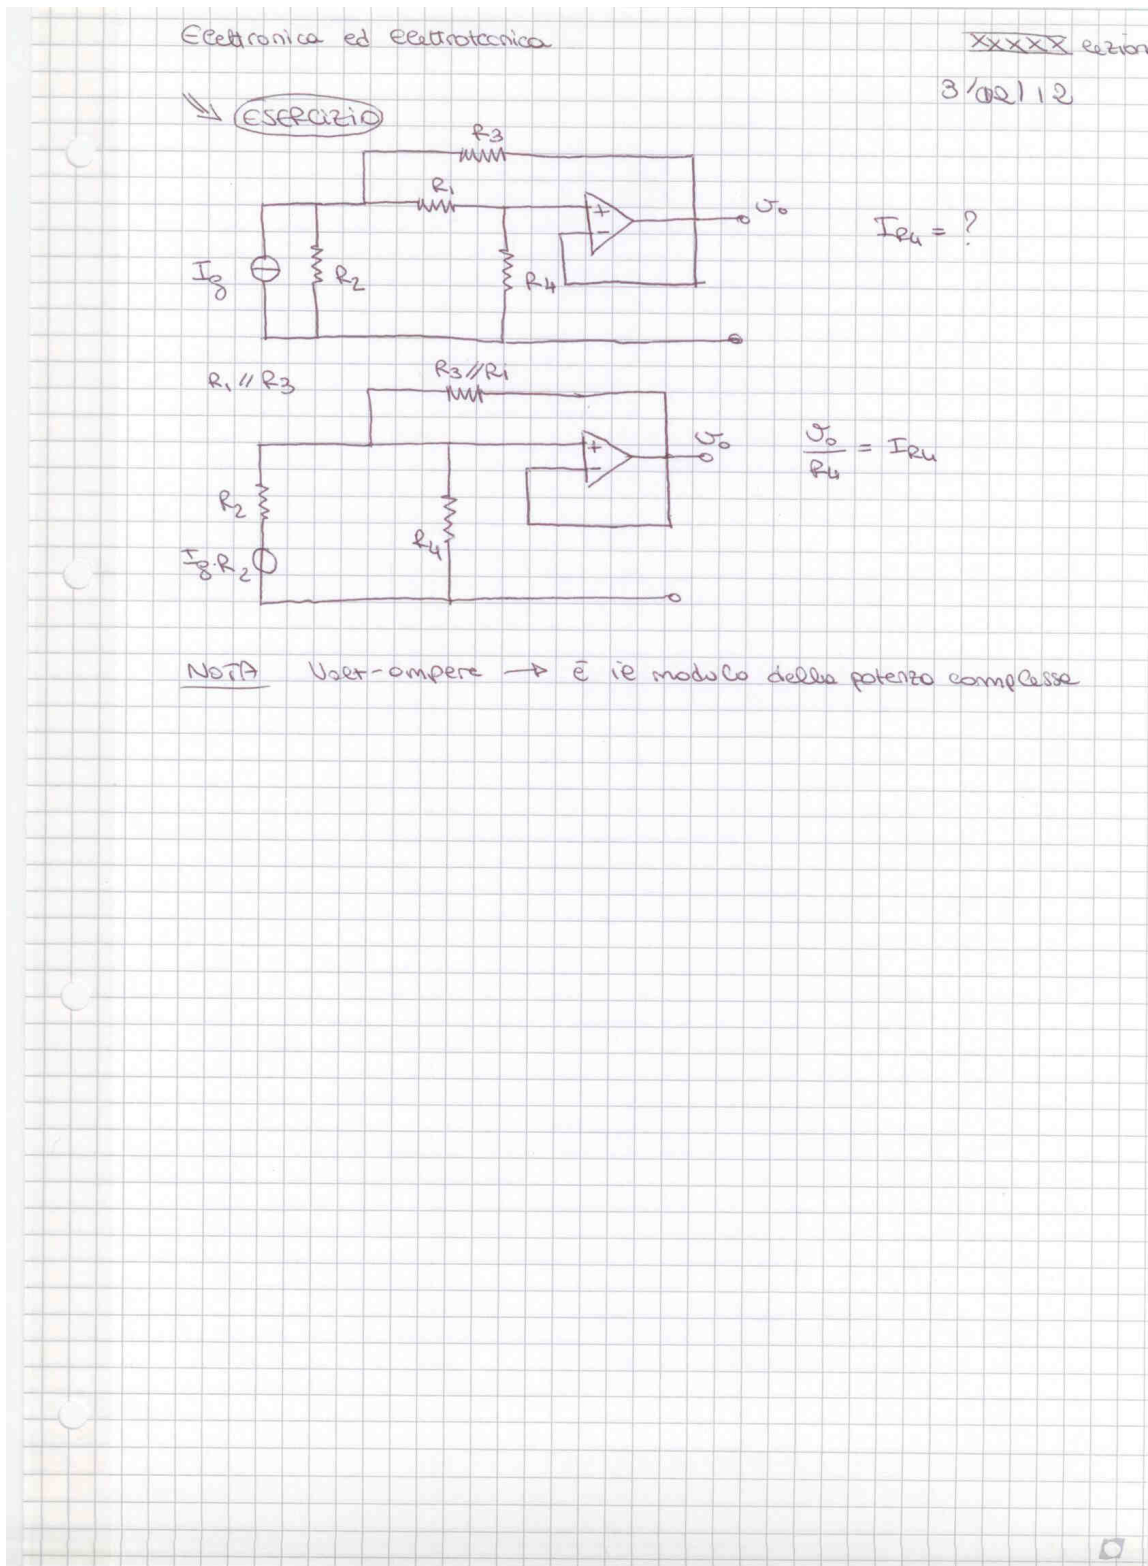 Elettronica ed elettrotecnica
XXXXX lezion
3/02/12
ESERCIZIO
R3
R1
Ig
R2
R4
υo
IR4 = ?
R1 // R3
R3//R1
R2
Ig·R2
R4
υo
υo/R4 = IR4
NOTA Volt-ampere → è il modulo della potenza complessa